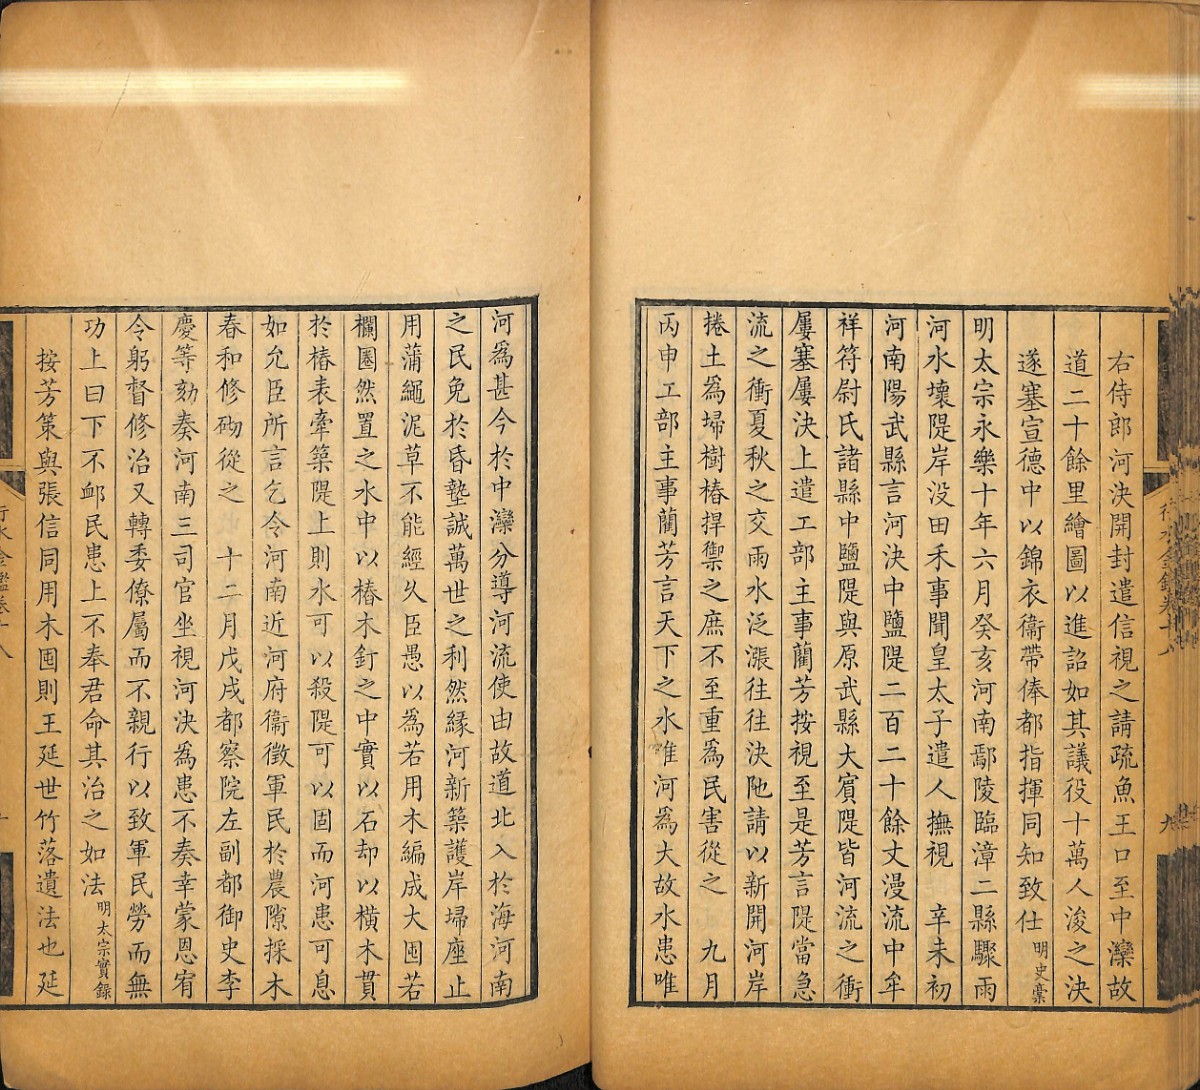 右侍郎河決開封遣信視之請疏魚王口至中灤故
道二十餘里繪圖以進詔如其議役十萬人浚之決
遂塞宣德中以錦衣衞帶俸都指揮同知致仕明史稾
明太宗永樂十年六月癸亥河南鄢陵臨漳二縣驟雨
河水壞隄岸没田禾事聞皇太子遣人撫視　辛未初
河南陽武縣言河決中鹽隄二百二十餘丈漫流中牟
祥符尉氏諸縣中鹽隄與原武縣大賓隄皆河流之衝
屢塞屢決上遣工部主事藺芳按視至是芳言隄當急
流之衝夏秋之交雨水泛漲往往決阤請以新開河岸
捲土爲埽樹樁捍禦之庶不至重爲民害從之　九月
丙申工部主事藺芳言天下之水唯河爲大故水患唯
河爲甚今於中灤分導河流使由故道北入於海河南
之民免於昏墊誠萬世之利然緣河新築護岸埽座止
用蒲繩泥草不能經久臣愚以爲若用木編成大囤若
欄圈然置之水中以樁木釘之中實以石却以横木貫
於樁表牽築隄上則水可以殺隄可以固而河患可息
如允臣所言乞令河南近河府衞徵軍民於農隙採木
春和修砌從之　十二月戊戌都察院左副都御史李
慶等劾奏河南三司官坐視河決爲患不奏幸蒙恩宥
令躬督修治又轉委僚屬而不親行以致軍民勞而無
功上曰下不卹民患上不奉君命其治之如法明太宗實錄
按芳策與張信同用木囤則王延世竹落遺法也延
行水金鑑卷十八